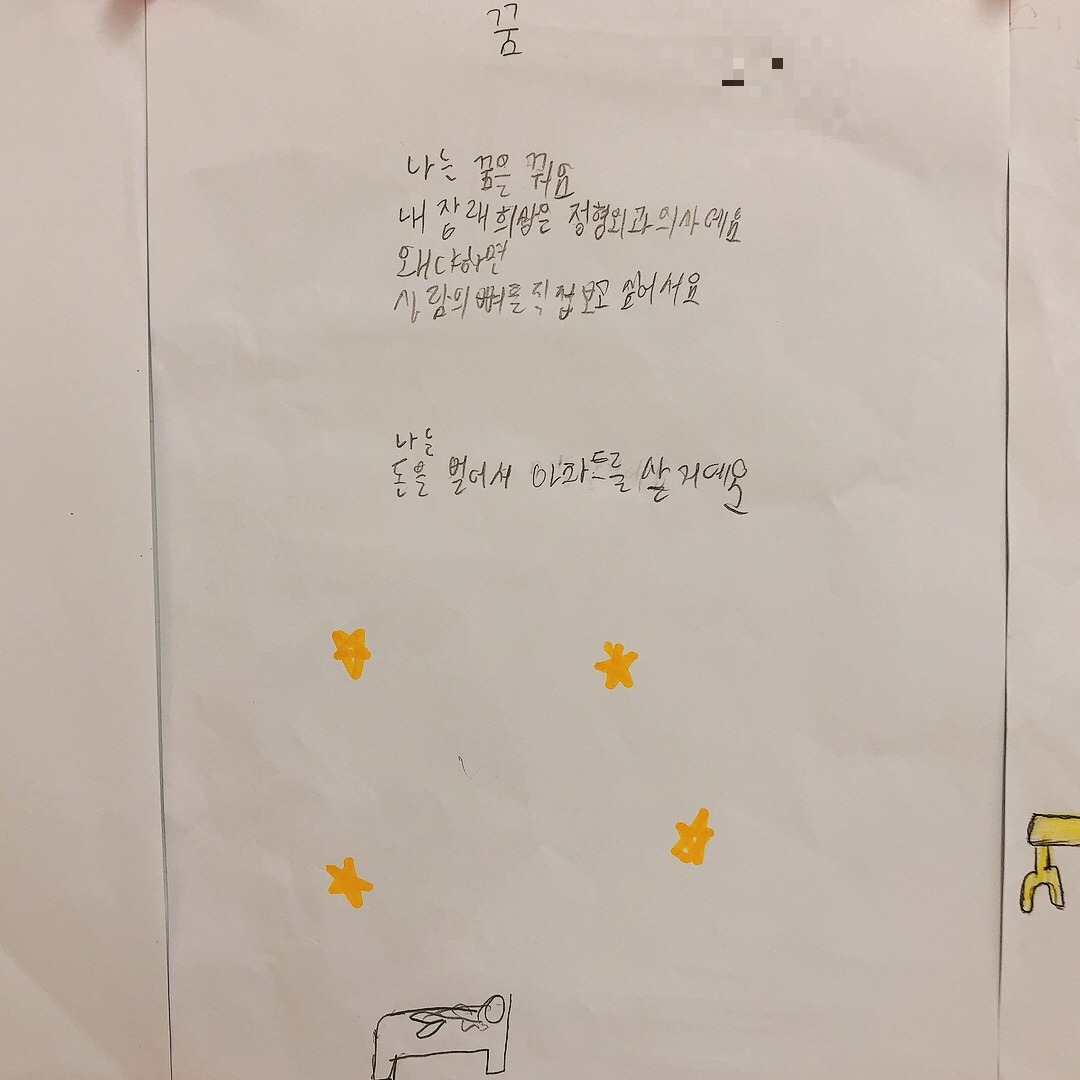 꿈
나는 꿈은 꿔요
내 장래희망은 정형외과의사예요
왜냐하면
사람의 뼈를 직접보고 싶어서요
나는
돈을 벌어서 아파트를 살거예요